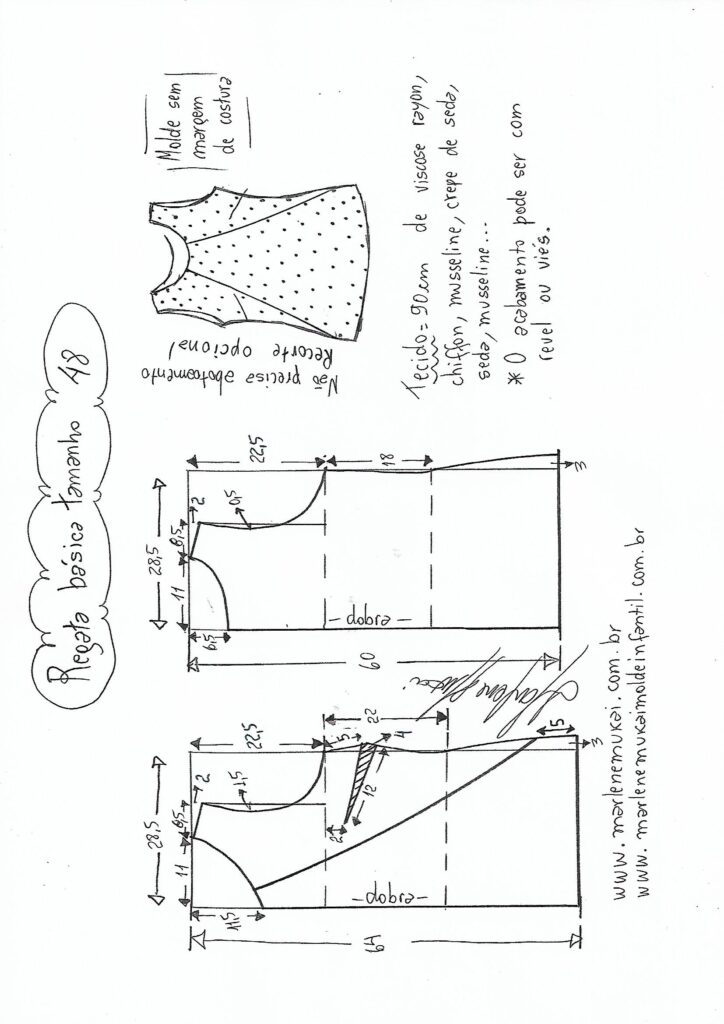 Regata básica tamanho 48
Molde sem
margem
de costura
Não precisa abotoamento
Recorte opcional
Tecido = 90cm de viscose rayon,
chiffon, musseline, crepe de seda,
seda, musseline...
* O acabamento pode ser com
revel ou viés.
28,5
11
8,5
2
22,5
6,5
0,5
18
3
60
-dobra-
28,5
11
8,5
2
22,5
11,5
1,5
22
5
4
12
2
15
3
64
-dobra-
Marlene Mukai
www.marlenemukai.com.br
www.marlenemukaimoldeinfantil.com.br